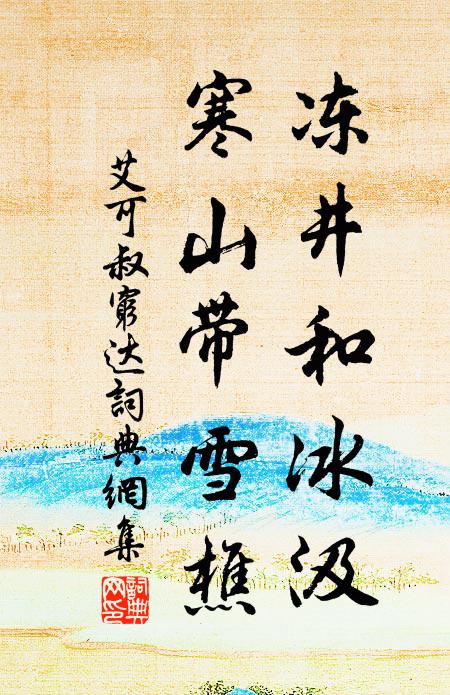 冻井和冰汲
寒山带雪樵
艾可叔窮达詞典網集
詞典